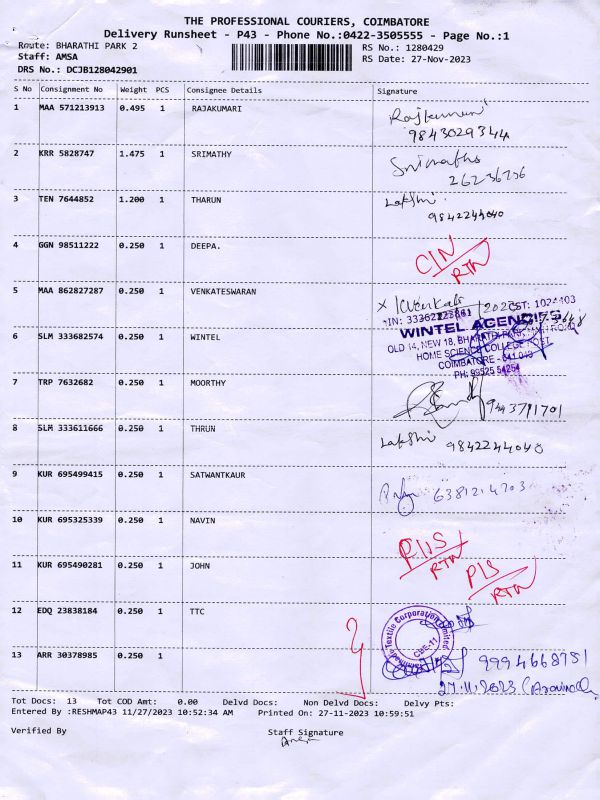 THE PROFESSIONAL COURIERS, COIMBATORE
Delivery Runsheet - P43 - Phone No.:0422-3505555 - Page No.:1
Route: BHARATHI PARK 2 RS No.: 1280429
Staff: AMSA RS Date: 27-Nov-2023
DRS No.: DCJB128042901
S No Consignment No Weight PCS Consignee Details Signature
1 MAA 571213913 0.495 1 RAJAKUMARI Rajkumari
9843029344
2 KRR 5828747 1.475 1 SRIMATHY Srimathy
26236736
3 TEN 7644852 1.200 1 THARUN Lakshmi
9842244040
4 GGN 98511222 0.250 1 DEEPA. CIN
RTN
5 MAA 862827287 0.250 1 VENKATESWARAN
WINTEL AGENCIES
6 SLM 333682574 0.250 1 WINTEL OLD 14, NEW 18, BHARATHI PARK
HOME SCIENCE COLLEGE POST
COIMBATORE - 641 043
PH: 99525 54254
7 TRP 7632682 0.250 1 MOORTHY
8 SLM 333611666 0.250 1 THRUN Lakshmi 9842244040
9 KUR 695499415 0.250 1 SATWANTKAUR 6381214703
10 KUR 695325339 0.250 1 NAVIN
RTN
11 KUR 695490281 0.250 1 JOHN
RTN
12 EDQ 23838184 0.250 1 TTC Textile Corporation Limited
CBE-11
13 ARR 30378985 0.250 1
27.11.2023
Tot Docs: 13 Tot COD Amt: 0.00 Delvd Docs: Non Delvd Docs: Delvy Pts:
Entered By :RESHMAP43 11/27/2023 10:52:34 AM Printed On: 27-11-2023 10:59:51
Verified By Staff Signature